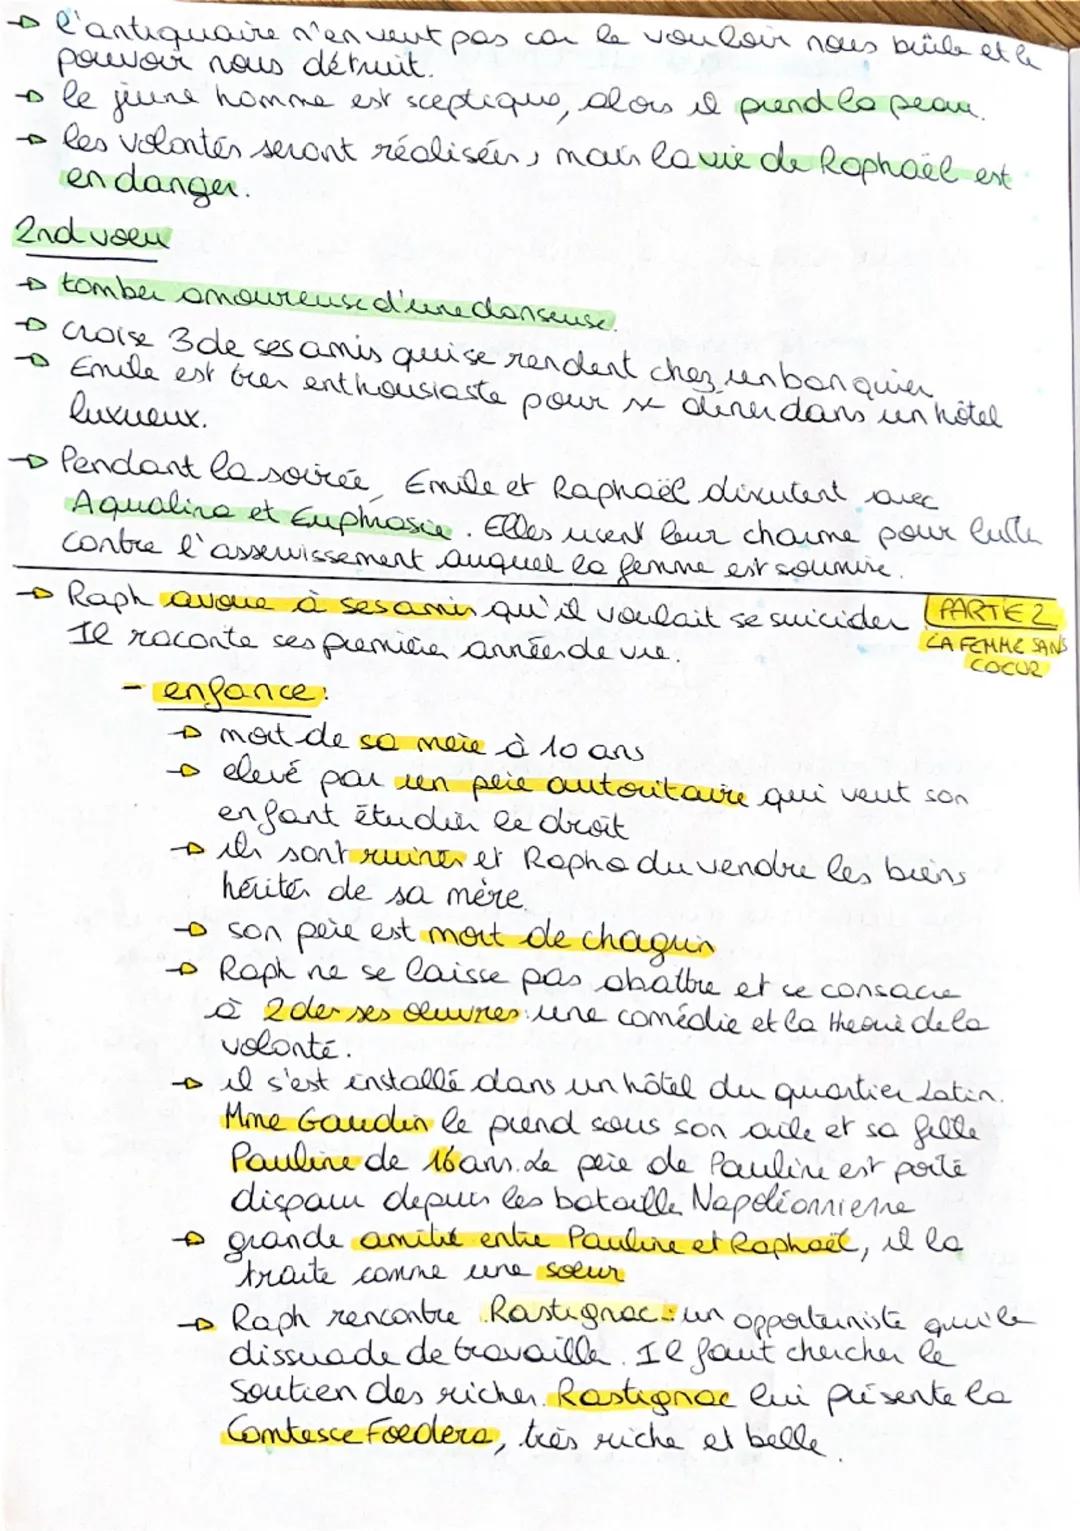 → l'antiquaire n'en veut pas car le vouloir nous brûle et le
pouvoir nous détruit.
→ le jeune homme est sceptique, alors il prend la peau.
→ les volontés seront réalisées, mais la vie de Raphaël est
en danger.
2nd voeu
→ tomber amoureuse d'une danseuse.
→ croise 3 de ses amis qui se rendent chez un banquier
→ Emile est très enthousiaste pour se dîner dans un hôtel
luxueux.
→ Pendant la soirée, Emile et Raphaël discutent avec
Aqualina et Euphrasie. Elles usent leur charme pour lutter
contre l'asservissement auquel la femme est soumise.
→ Raph avoue à ses amis qu'il voulait se suicider
PARTIE 2
LA FEMME SANS
COEUR
Il raconte ses première années de vie.
- enfance:
→ mort de sa mère à 10 ans
→ elevé par un père autoritaire qui veut son
enfant étudier le droit
→ ils sont ruinés et Rapha du vendre les biens
hérités de sa mère.
→ son père est mort de chagrin
→ Raph ne se laisse pas abattre et se consacre
à 2 des ses œuvres: une comédie et la theorie de la
volonté.
→ il s'est installé dans un hôtel du quartier Latin.
Mme Gaudin le prend sous son aile et sa fille
Pauline de 16 ans. Le père de Pauline est porté
disparu depuis les bataille Napoléonnienne
→ grande amitié entre Pauline et Raphaël, il la
traite comme une soeur
→ Raph rencontre Rastignac: un opportuniste qui le
dissuade de travailler. Il faut chercher le
soutien des riches. Rastignac lui présente la
Comtesse Foedera, très riche et belle.